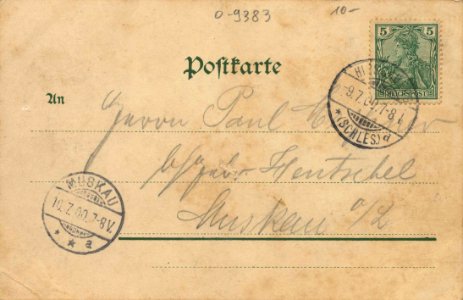 0-9383 10-
Postkarte
5 5
REICHSPOST
An
9.7.00.7-8
(SCHLES)
Herrn Paul
Hentschel
Muskau o/L
MUSKAU
10.7.00.7-8V.
a